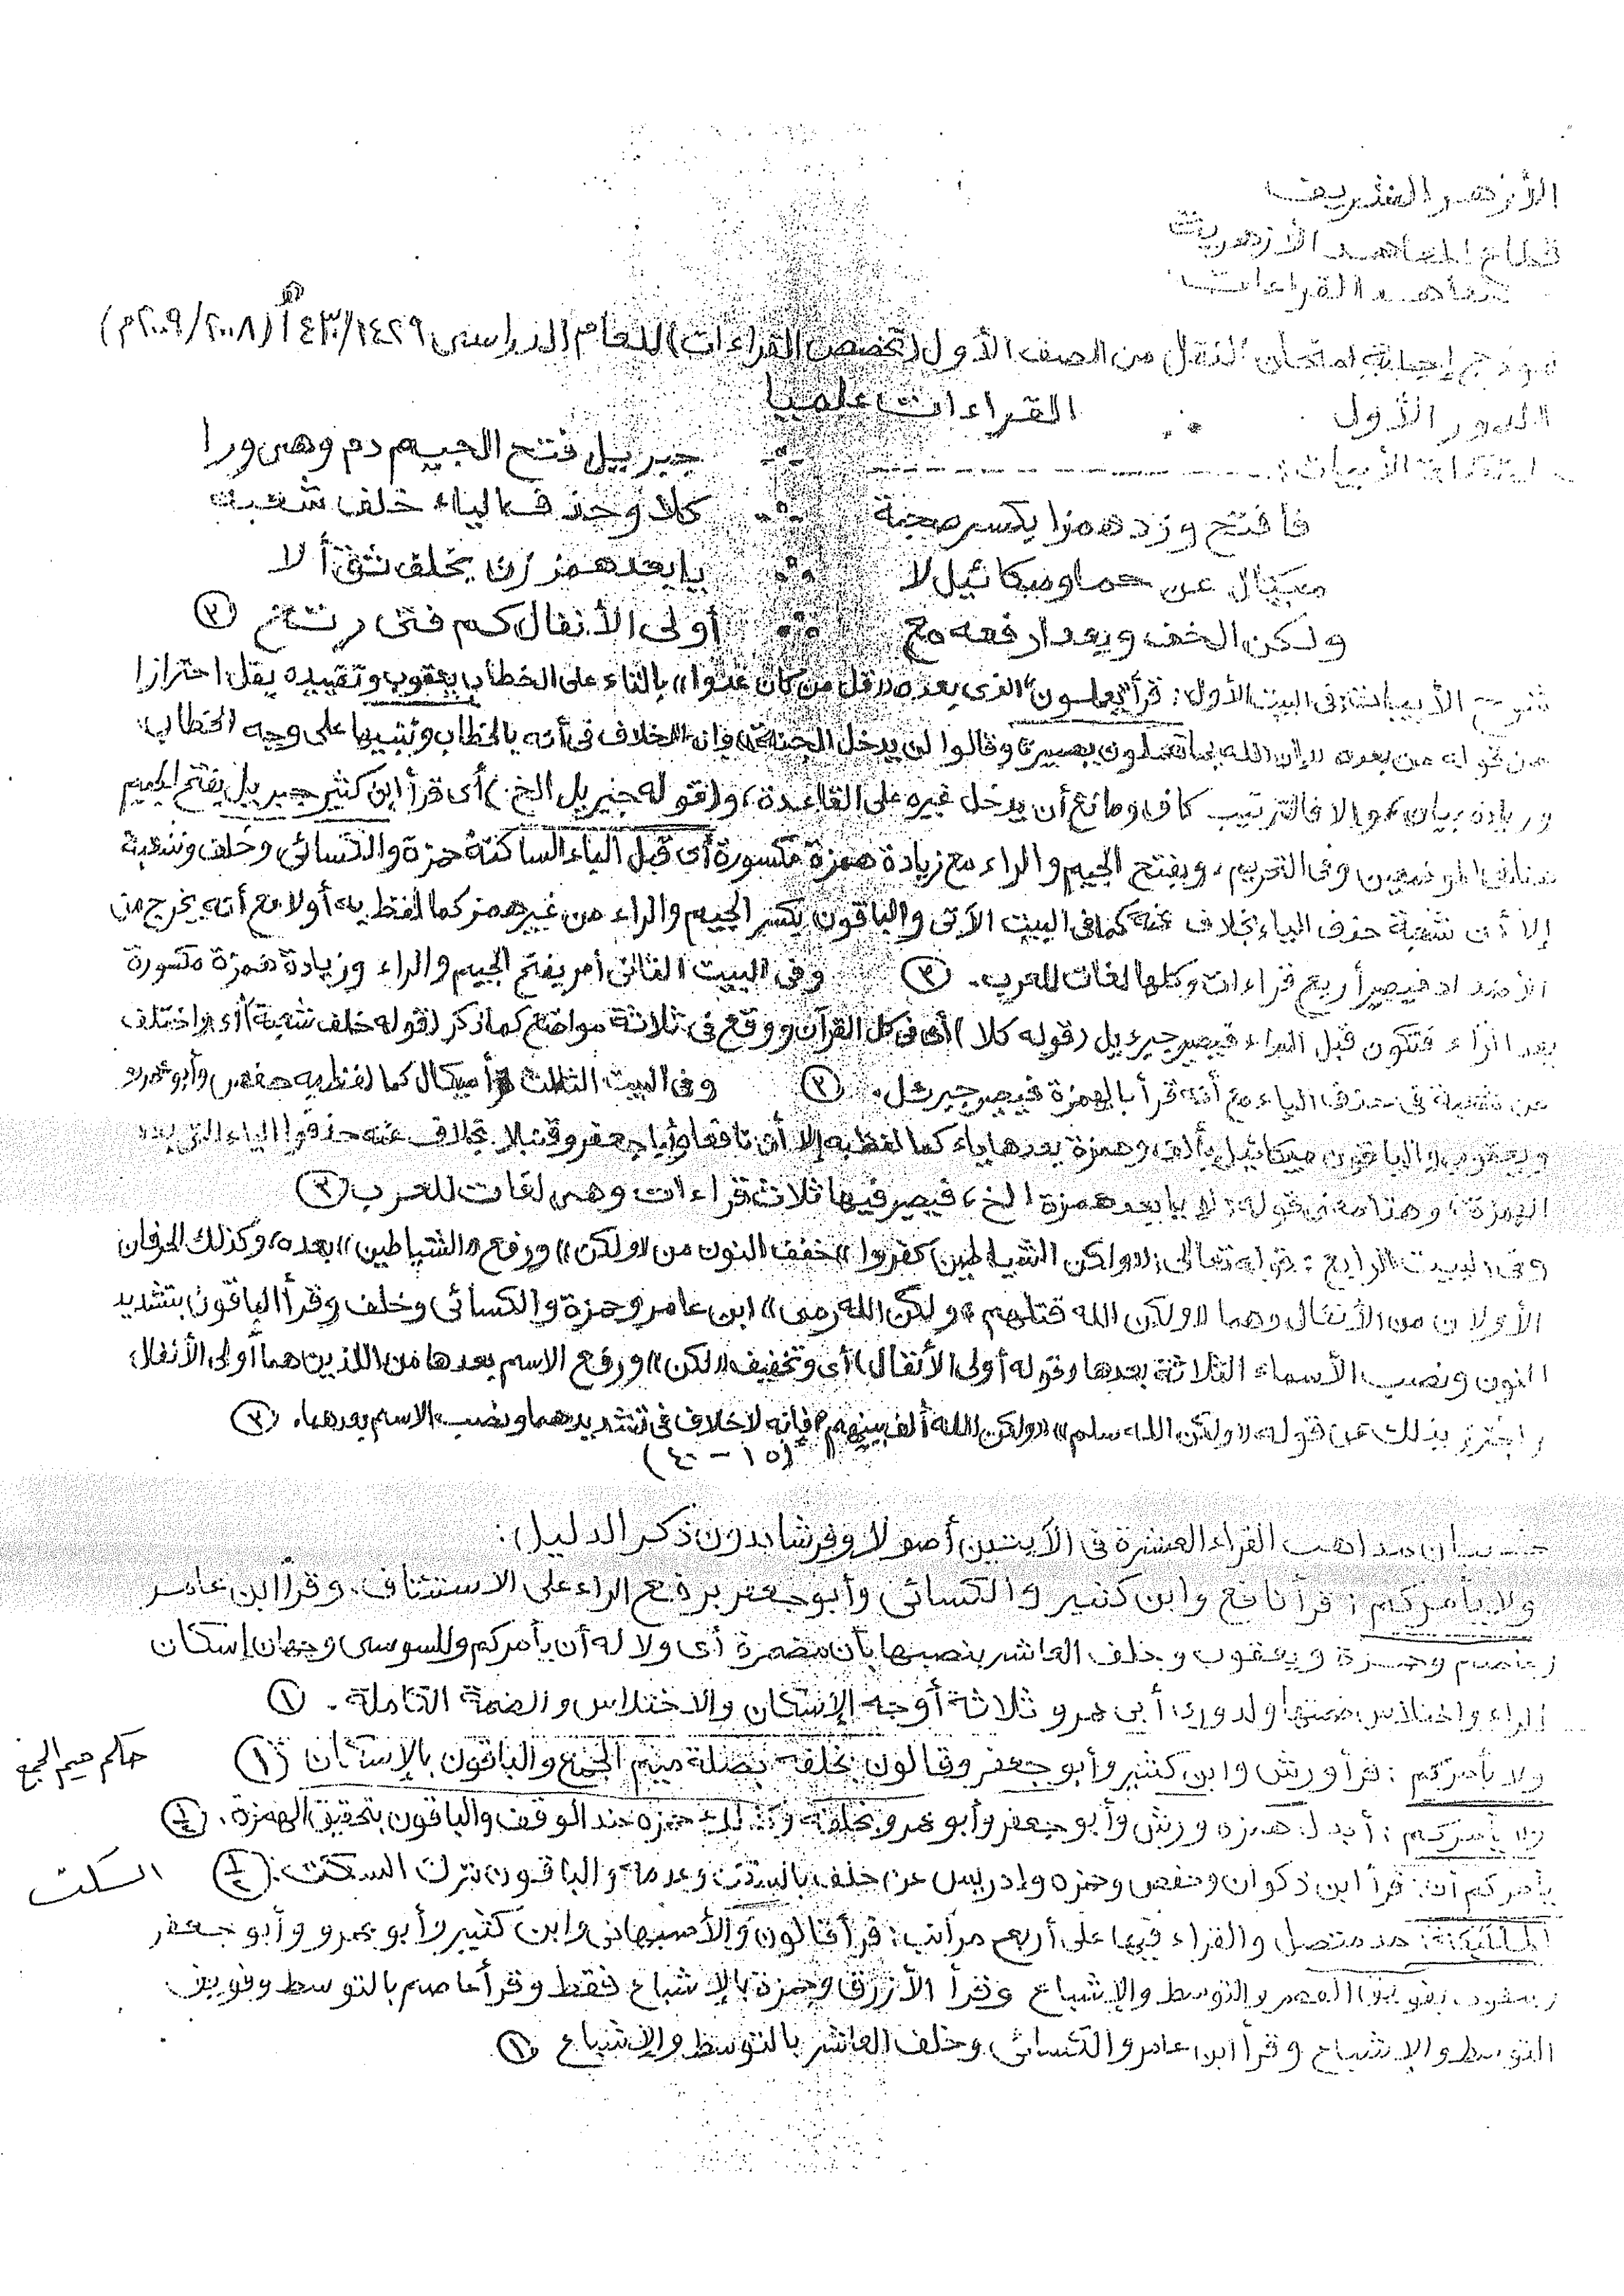 الأزهر الشريف
قطاع المعاهد الأزهرية
معاهد القراءات
نموذج إجابة امتحان النقل من الصف الأول (تخصص القراءات) للعام الدراسى ١٤٢٩/١٤٣٠هـ (٢٠٠٨/٢٠٠٩م)
الدور الأول ∴ القراءات علميا
استكمال الأبيات : ------------ ∴ جبريل فتح الجيم دم وهى ورا
فافتح وزد همزا يكسر صحبة ∴ كلا وحذف الياء خلف شعبة
ميكال عن حما وميكائيل لا ∴ يا بعد همز زن بخلف ثق ألا
ولكن الخف وبعد ارفعه مع ∴ أولى الأنفال كم فتى رتع ٢
شرح الأبيات: فى البيت الأول: قرأ "يعملون" الذى بعده «قل من كان عدوا» بالتاء على الخطاب يعقوب وتقييده بقل احترازا
من قوله من بعده «إن الله بما تعملون بصير، وقالوا لن يدخل الجنة» فإنه لاخلاف فى أنه بالخطاب وتنبيها على وجه الخطاب
وزيادة بيان، وإلا فالترتيب كاف ومانع أن يدخل غيره على القاعدة، و(قوله جبريل الخ) أى قرأ ابن كثير جبريل بفتح الجيم
هنا فى الموضعين وفى التحريم، وبفتح الجيم والراء مع زيادة همزة مكسورة أى قبل الياء الساكنة حمزة والكسائى وخلف وشعبة
إلا أن شعبة حذف الياء بخلاف عنه كما فى البيت الآتى والباقون بكسر الجيم والراء من غير همز كما لفظ به أولا مع أنه يخرج من
الأضداد فيصير أربع قراءات وكلها لغات للعرب. ٢ وفى البيت الثانى أمر بفتح الجيم والراء وزيادة همزة مكسورة
بعد الراء فتكون قبل الياء فيصير جبرءيل (قوله كلا) أى فى كل القرآن ووقع فى ثلاثة مواضع كما ذكر (قوله خلف شعبة) أى واختلف
عن شعبة فى حذف الياء مع أنه قرأ بالهمزة فيصير جبرئل. ٢ وفى البيت الثالث قرأ ميكال كما لفظ به حفص وأبو عمرو
ويعقوب والباقون ميكائيل بألف وهمزة بعدها ياء كما لفظ به إلا أن نافعا وأبا جعفر وقنبلا بخلاف عنه حذفوا الياء التى بعد
الهمزة، وهذا معنى قوله: لا يا بعد همزة الخ، فيصير فيها ثلاث قراءات وهى لغات للعرب ٢
وفى البيت الرابع : قوله تعالى: «ولكن الشياطين كفروا» خفف النون من «ولكن» ورفع «الشياطين» بعده، وكذلك الحرفان
الأولان من الأنفال وهما «ولكن الله قتلهم» «ولكن الله رمى» ابن عامر وحمزة والكسائى وخلف وقرأ الباقون بتشديد
النون ونصب الأسماء الثلاثة بعدها (قوله أولى الأنفال) أى وتخفيف «لكن» ورفع الاسم بعدها من اللذين هما أولى الأنفال
واحترز بذلك عن قوله «ولكن الله سلم» «ولكن الله ألف بينهم» فإنه لاخلاف فى تشديدهما ونصب الاسم بعدهما. ٢
(١٥ - ٤٠)
بيان مذاهب القراء العشرة فى الآيتين أصولا وفرشا بدون ذكر الدليل :
ولا يأمركم : قرأ نافع وابن كثير والكسائى وأبو جعفر برفع الراء على الاستئناف. وقرأ ابن عامر
وعاصم وحمزة ويعقوب وخلف العاشر بنصبها بأن مضمرة أى ولا له أن يأمركم وللسوسى وجهان إسكان
الراء واختلاس ضمتها ولدورى أبى عمرو ثلاثة أوجه الإسكان والاختلاس والضمة الكاملة . ١
ولا يأمركم : قرأ ورش وابن كثير وأبو جعفر وقالون بخلفه بصلة ميم الجمع والباقون بالإسكان ١ حكم ميم الجمع
ولا يأمركم : أبدل همزه ورش وأبو جعفر وأبو عمرو بخلفه وكذلك حمزه عند الوقف والباقون بتحقيق الهمزة. ½
يأمركم أن: قرأ ابن ذكوان وحفص وحمزه وإدريس عن خلف بالسكت وعدمه والباقون بترك السكت. ½ السكت
الملئكة: مد متصل والقراء فيها على أربع مراتب: قرأ قالون والأصبهانى وابن كثير وأبو عمرو وأبو جعفر
ويعقوب بفويق القصر والتوسط والإشباع وقرأ الأزرق وحمزة بالإشباع فقط وقرأ عاصم بالتوسط وفويق
التوسط والإشباع وقرأ ابن عامر والكسائى وخلف العاشر بالتوسط والإشباع ١